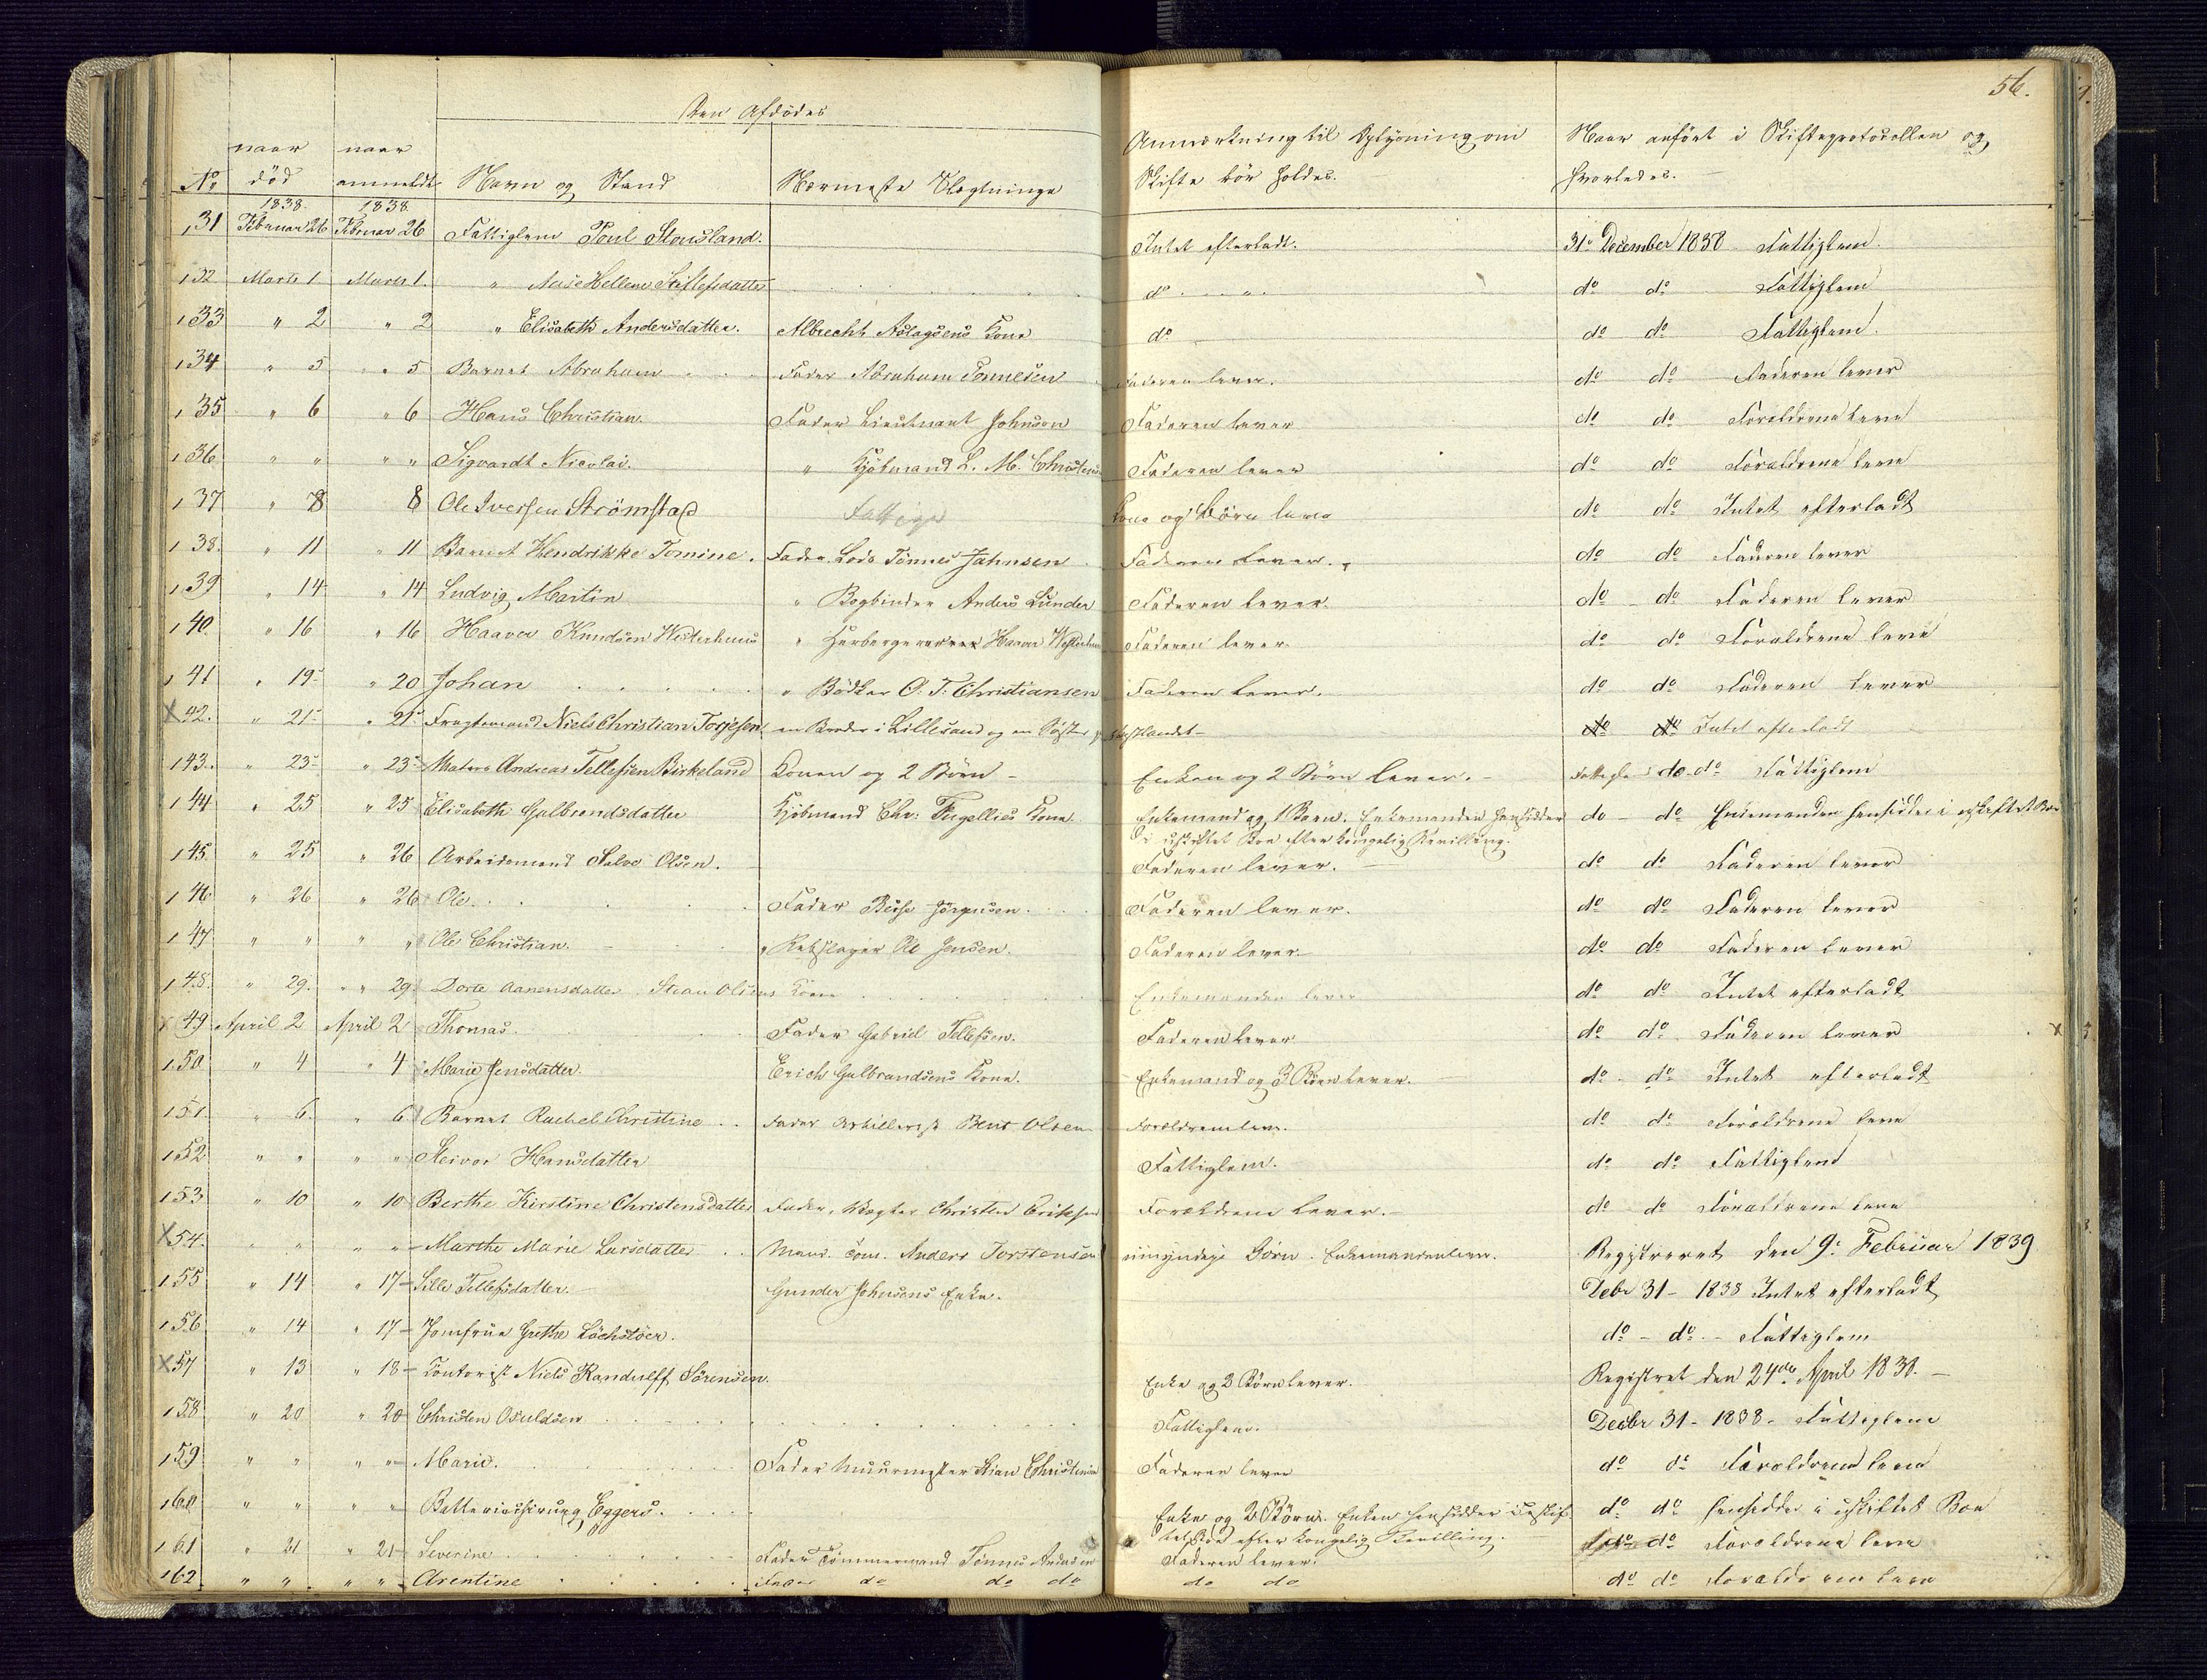 56.
Den Afdødes
No naar død naar anmeldt Navn og Stand Nærmeste Slegtninge Anmærkning til Oplysning om Skifte bør holdes. Naar anført i Skifteprotocollen og hvorledes.
1838. 1838
31 Februar 26 Februar 26 Fattiglem Poul Stousland. Intet efterladt. 31 December 1838 Fattiglem.
32 Marts 1 Marts 1. " Aase Hellene Stillefsdatter do " do do Fattiglem
33 " 2 " 2 " Elisabeth Andersdatter. Albrecht Aslagsens Kone do do do Fattiglem.
34 " 5 " 5 Barnet Abraham Fader Abraham Tønnesen Faderen lever. do do Faderen lever
35 " 6 " 6 Hans Christian. Fader Lieutnant Johnson Faderen lever do do Forældrene leve
36 " " " " Sigvardt Nicolai. " Kjøbmand L. M. Faderen lever do do Forældrene leve
37 " 8 8 Ole Iversen Strömstad Fattige Kone og Børn leve do do Intet efterladt
38. " 11 " 11 Barnet Hendrikke Tomine. Fader Lods Tønnes Jahnsen Faderen lever. do do Faderen lever
39 " 14 " 14 Ludvig Martin " Bogbinder Anders Lunder Faderen lever. do do Faderen lever
40. " 16 " 16 Haaver Knudsen Westerhuus " Haaver Faderen lever. do do Forældrene leve
41 " 19 " 20 Johan " Bødker O. T. Christiansen Faderen lever. do do Faderen lever
X 42. " 21 " 21 Fragtemand Niels Christian Torjesen en Broder i Lillesand og en Søster do do Intet efterladt
43. " 23 " 23 Andreas Tellefsen Birkeland Konen og 2 Børn Enken og 2 Børn lever. do do Fattiglem
44 " 25 " 25 Elisabeth Gulbrandsdatter Kjøbmand Chr: Fugellies Kone Enkemand og 1 Barn. Enkemanden hensidder do do Enkemanden hensidder i uskiftet Boe
i uskiftet Boe efter kongelig Bevilling.
45. " 25 " 26 Arbeidsmand Salve Olsen. Faderen lever. do do Faderen lever
46 " 26 " 26 Ole Fader Jørgensen. Faderen lever. do do Faderen lever
47 " " " " Ole Christian. " Rebslager Ole Jensen. Faderen lever. do do Faderen lever
48. " 29. " 29 Dorte Aanensdatter. Stian Olsens Kone Enkemanden lever do do Intet efterladt
x 49 April 2 April 2 Thomas. Fader Gabriel Tellefsen. Faderen lever do do Faderen lever x
50 " 4 " 4 Marie Jensdatter. Erich Gulbrandsens Kone. Enkemand og 3 Børn lever. do do Intet efterladt
51 " 6. " 6 Barnet Rachel Christine Fader Artillerist Bent Olsen Forældrene leve. do do Forældrene leve
52 " " " " Seivor Hansdatter Fattiglem. do do Fattiglem
53 " 10 " 10 Berthe Kirstine Christensdatter Fader, Vægter Christen Eriksen Forældrene lever. do do Forældrene leve
X 54. " " " " Marthe Marie Larsdatter Mand Tøm. Anders Torstensen umyndige Børn. Enkemanden lever. Registreret den 9 Februar 1839
55 " 14 " 17 Sille Tellefsdatter. Gunder Johnsens Enke. Debr 31 - 1838 Intet efterladt
56 " 14 " 17 Jomfrue Grethe Löchstöer. do - do - Fattiglem
X 57 " 13 " 18 Contorist Niels Randulff Sörensen. Enke og 2 Børn lever. Registret den 24de April 1838. -
58 " 20 " 20 Christen Osuldsen Fattiglem. Decbr 31 - 1838 - Fattiglem
59 " " " " Marie. Fader Muurmester Stian Christensen Faderen lever do do Forældrene leve
60 " " " " Batteriechirurg Eggers. Enke og 2 Børn. Enken hensidder i uskif- do do hensidder i uskiftet Boe
tet Boe efter kongelig Bevilling.
61 " 21 " 21 Severine Fader Tømmermand Tønnes Andersen Faderen lever. do do Forældrene leve
62 " " " " Arentine Fader do do do do do do do Forældrene leve